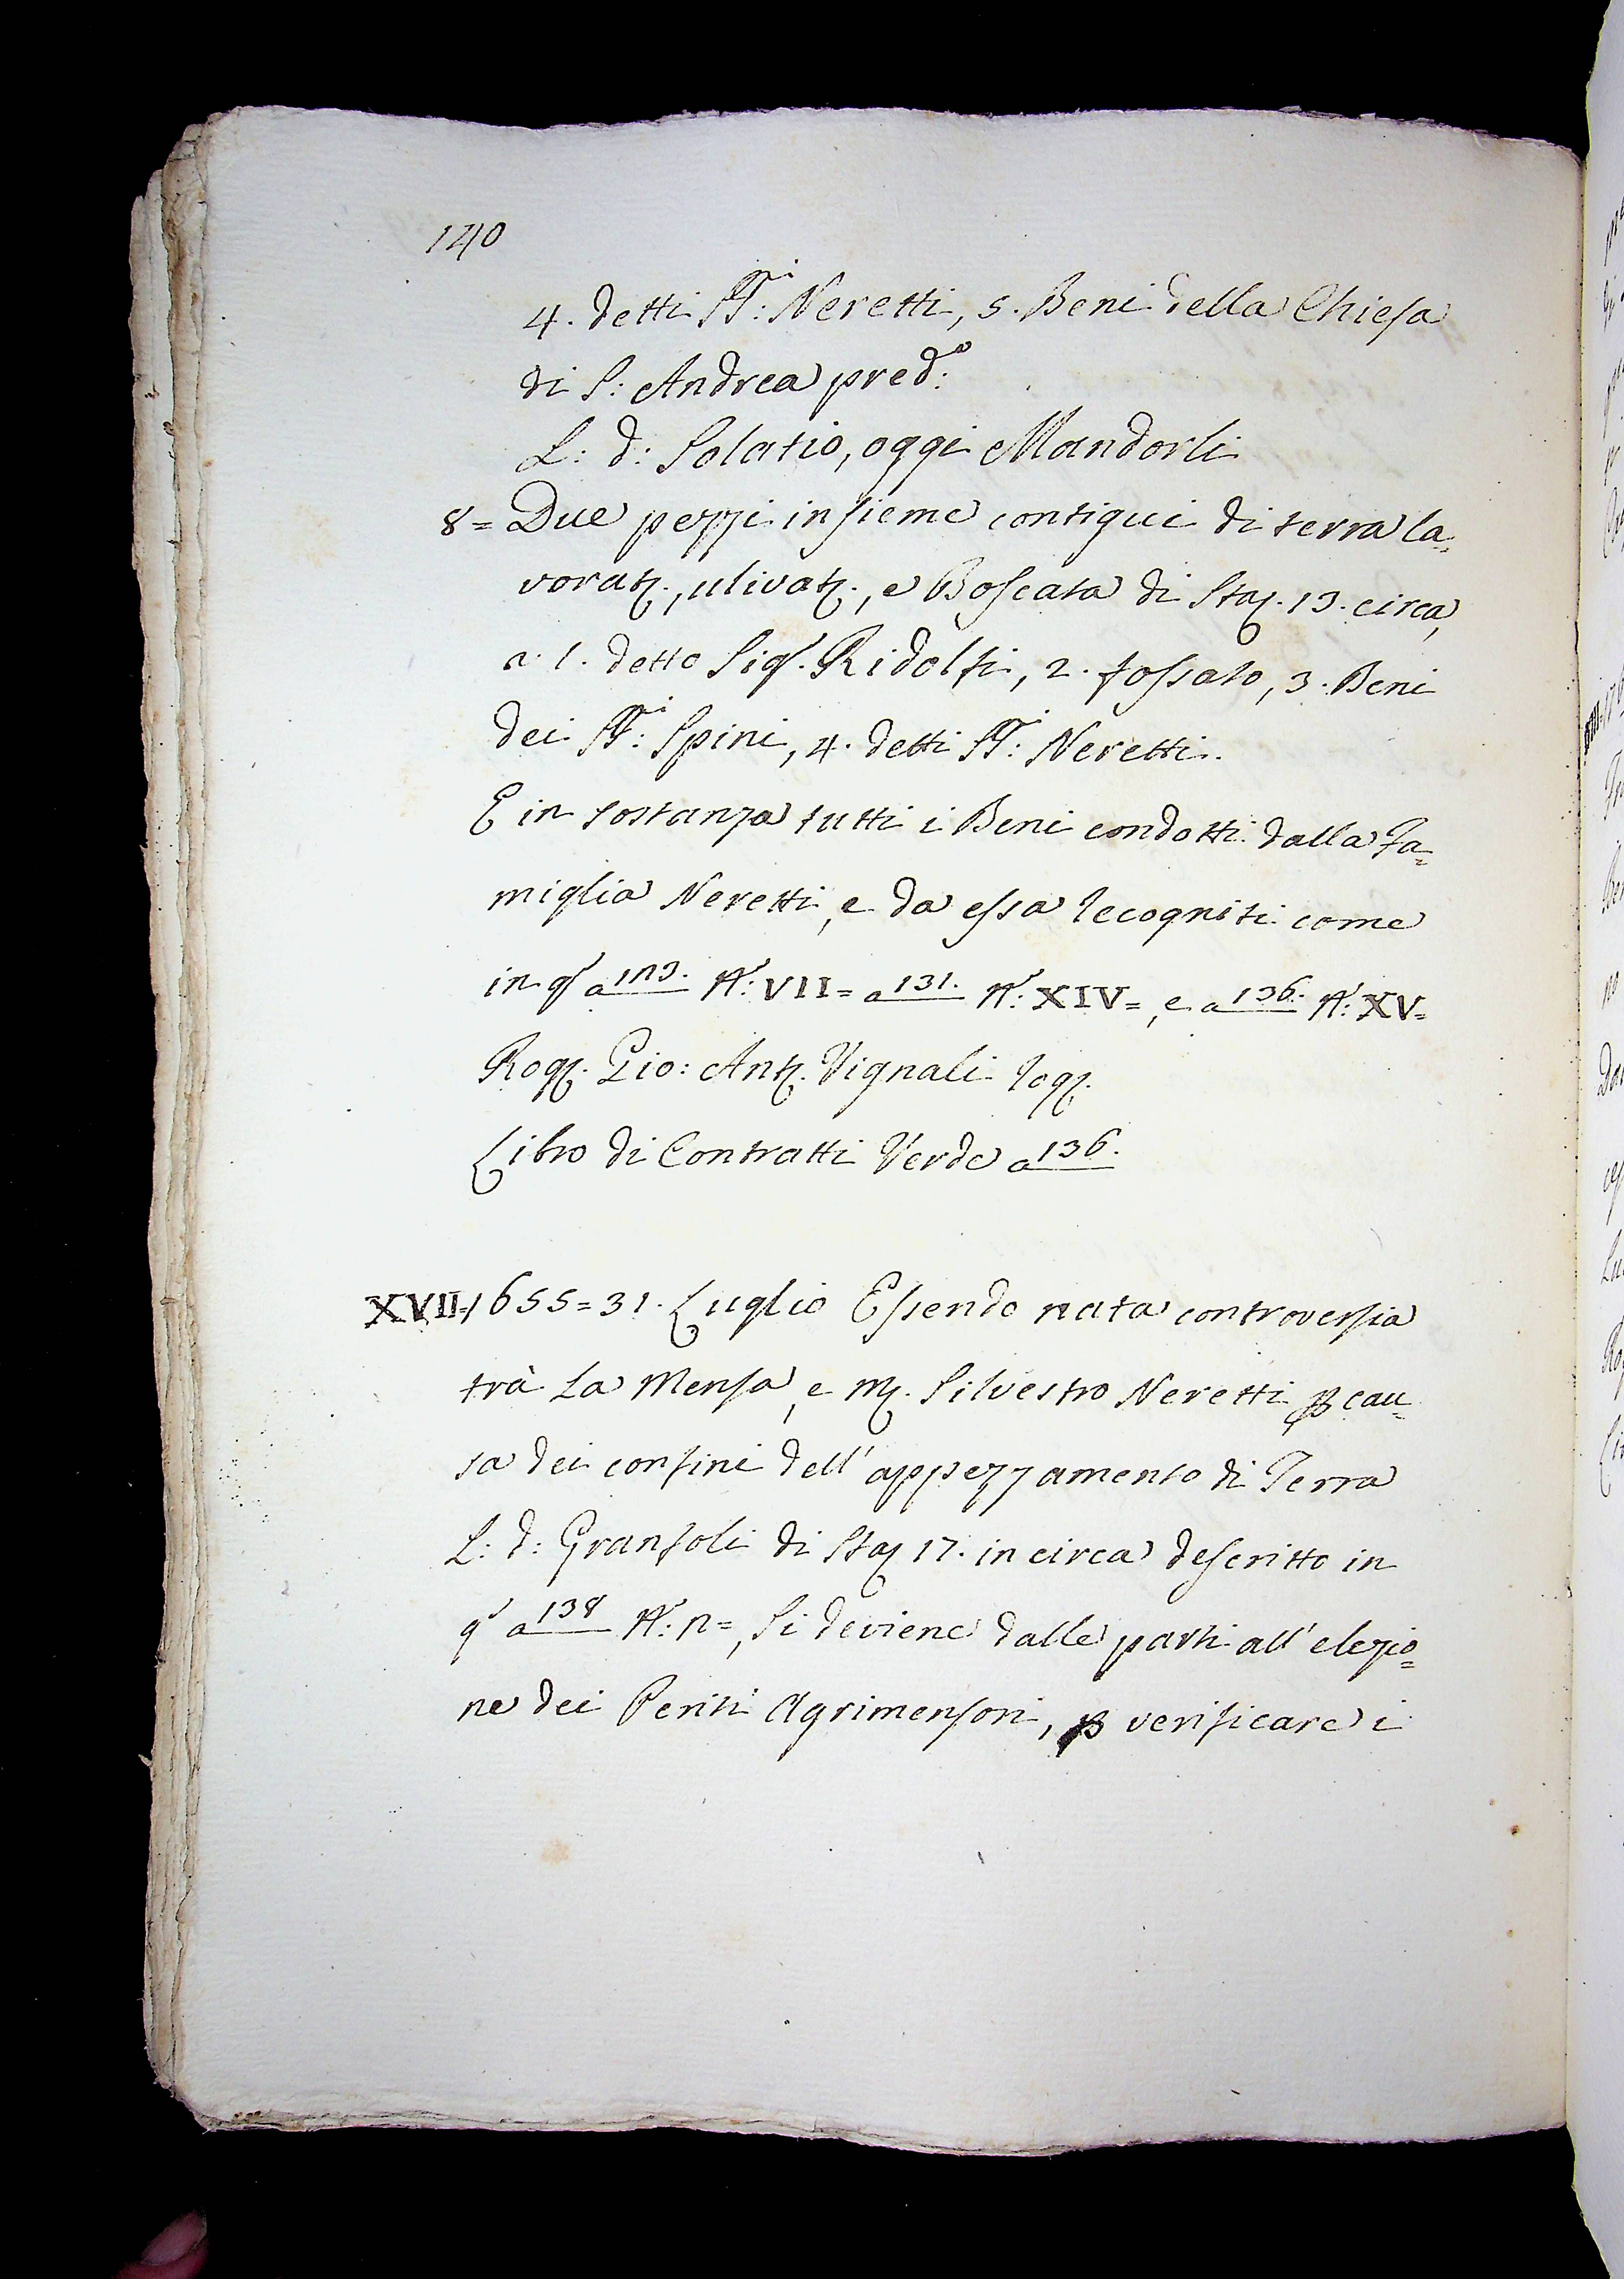 140
4. detti SS.ri: Neretti, 5. Beni della Chiesa
di S: Andrea pred.o:
L: d: Solatio, oggi Mandorli
8= Due pezzi insieme contigui di terra la=
vorat., ulivat., e Boscata di Sta. 13. circa,
a 1. detto Sig.r Ridolfi, 2. fossato, 3. Beni
dei SS.ri: Spini, 4. detti SS.ri: Neretti.
E in sostanza tutti i Beni condotti dalla Fa=
miglia Neretti, e da essa recogniti come
in q.o a N.o: VII= a 131. N.o: XIV=, e a 136. N.o: XV=
Rog. Gio: Ant. Vignali rog.
Libro di Contratti Verde a 136.
XVII=1655=31. Luglio Essendo nata controversia
trà La Mensa, e M. Silvestro Neretti p cau=
sa dei confini dell'appezzamento di Terra
L: d: Gransoli di Sta 17. in circa descritto in
q.o a 138 N.o: =, Si deviene dalle parti all'elezio=
ne dei Periti Agrimensori, p verificare i